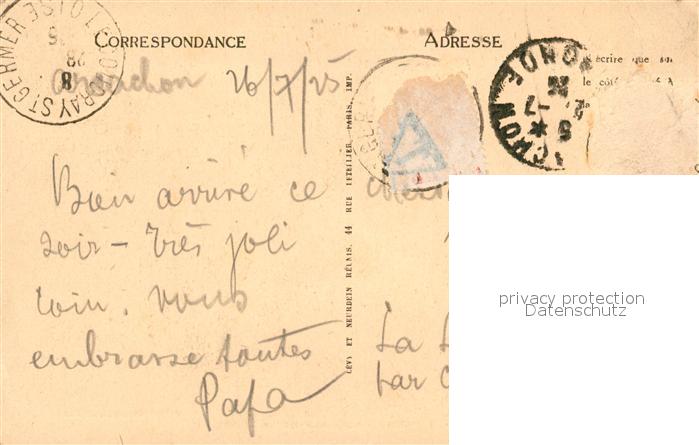 CORRESPONDANCE
ADRESSE
Écrire que sur
le côté
26/7/25
Bien arrivé ce
soir - très joli
coin. vous
embrasse toutes
Papa
LÉVY ET NEURDEIN RÉUNIS, 44 RUE LETELLIER, PARIS IMP.
La
par
privacy protection
Datenschutz